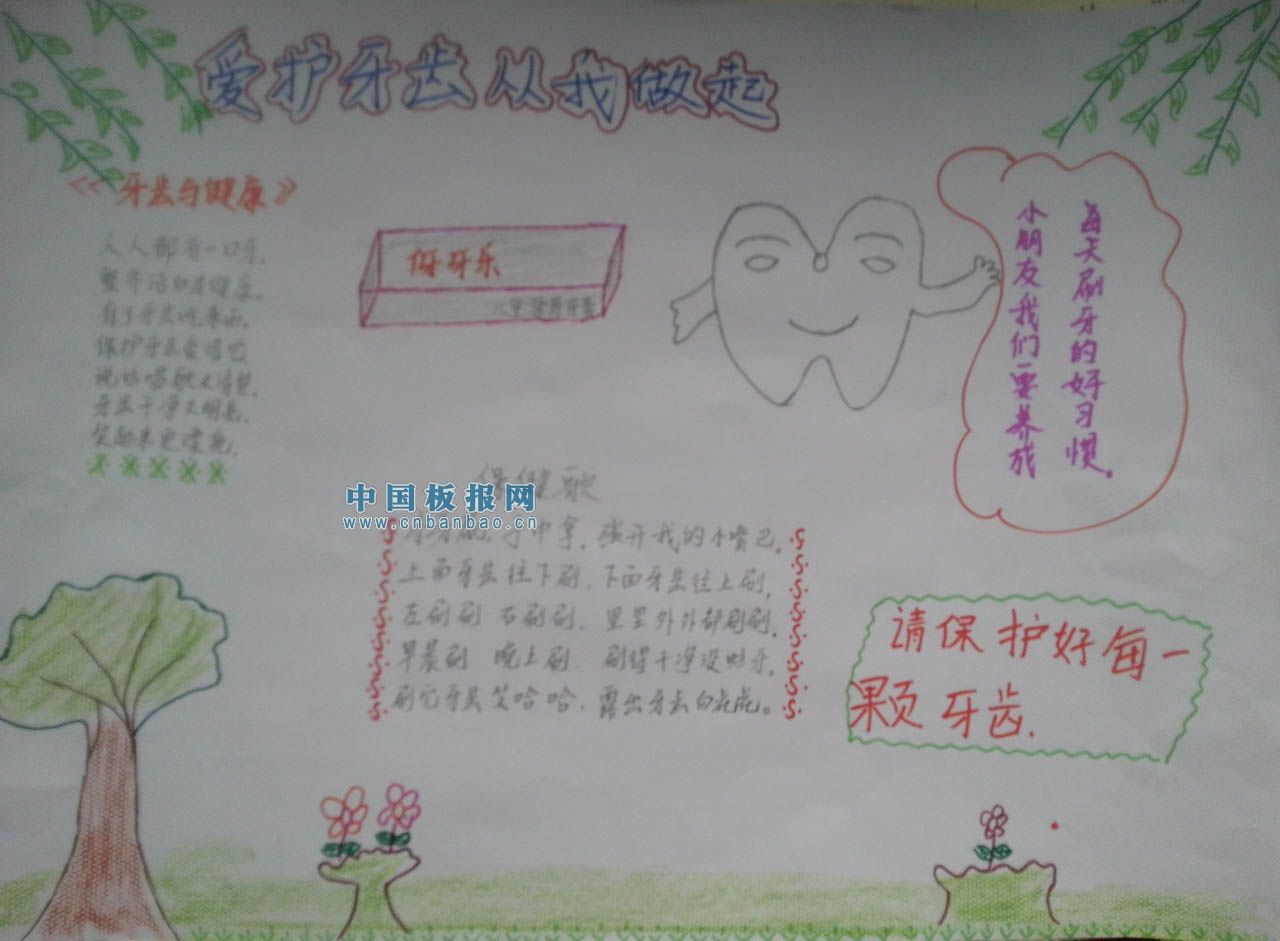 爱护牙齿从我做起
《牙齿与健康》
人人都有一口牙,
整齐洁白才健康,
有了牙齿吃东西,
保护牙齿爱惜它
说话唱歌又清楚,
牙齿干净又明亮,
笑起来更漂亮.
伢牙乐
儿童营养牙膏
每天刷牙的好习惯。
小朋友我们要养成
保健歌
中国板报网
www.cnbanbao.cn
手中拿,张开我的小嘴巴,
上面牙齿往下刷,下面牙齿往上刷,
左刷刷 右刷刷,里里外外都刷刷,
早晨刷 晚上刷 刷得干净没蛀牙,
刷完牙齿笑哈哈,露出牙齿白花花。
请保护好每一
颗牙齿.